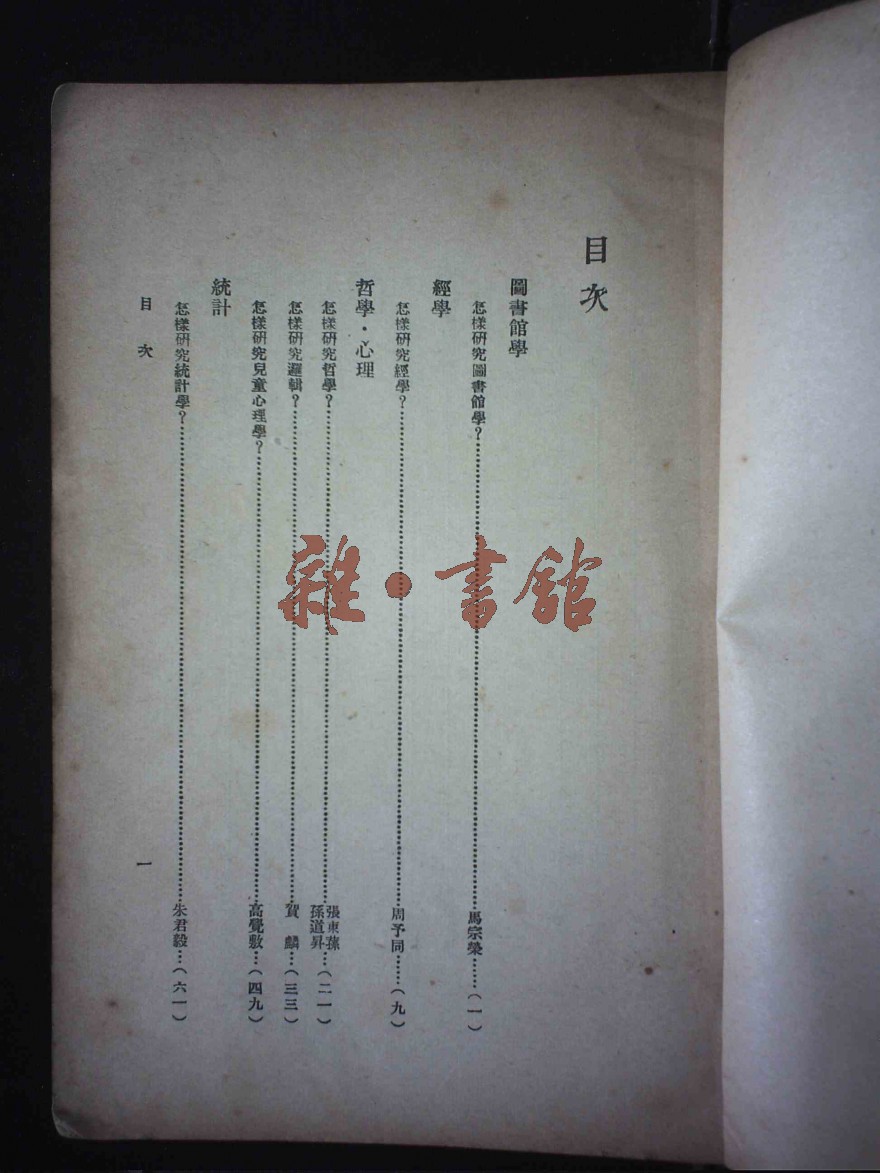 目次
圖書館學
怎樣研究圖書館學？……馬宗榮……（一）
經學
怎樣研究經學？……周予同……（九）
哲學・心理
怎樣研究哲學？……張東蓀 孫道昇…（二一）
怎樣研究邏輯？……賀麟…（三三）
怎樣研究兒童心理學？……高覺敷…（四九）
統計
怎樣研究統計學？……朱君毅…（六一）
目次
一
雜・書館